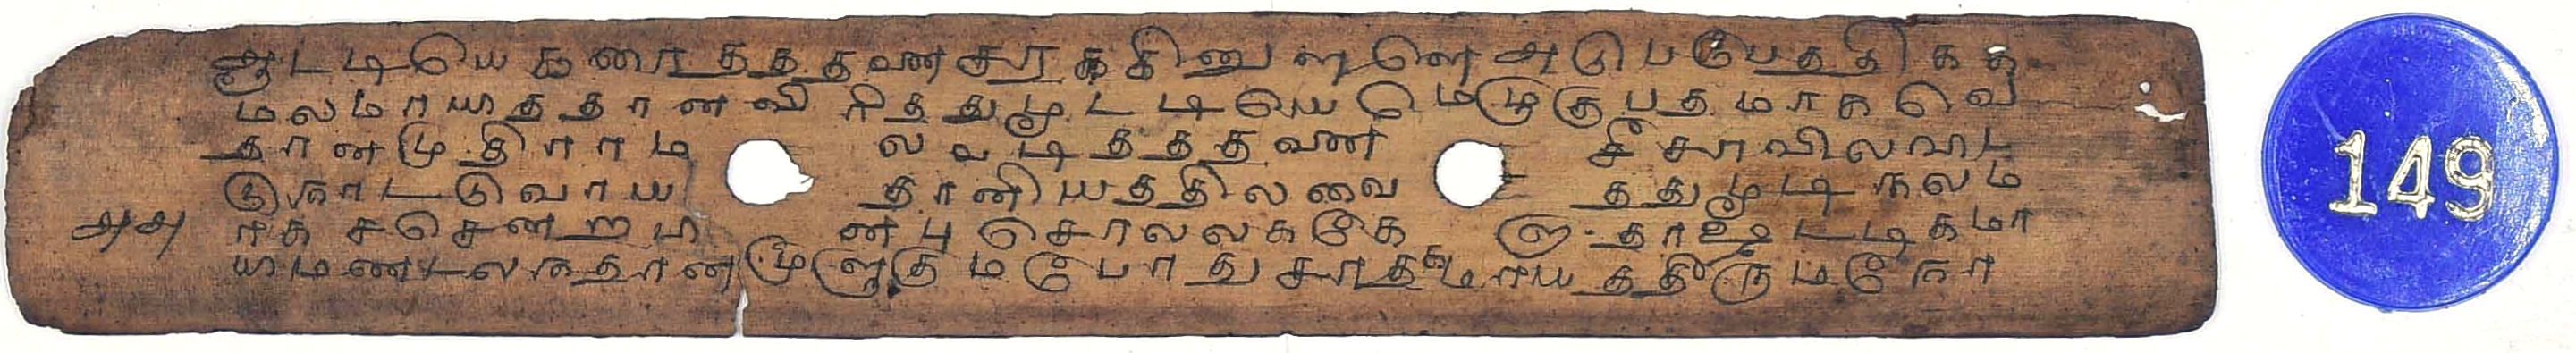 ஆட டியெ கரைத த த வண சரக கினு ளளெ அடுபபேத தி க க
மலமாயத தான வி ரித துமூட டியெ மெழுகுபத மாக வெ
தானமுதிராம ல வடித த த வண சீசாவில வாட
டுகாடடுவாய தானியத தில வை த துமூடி கலம
அஅ ாக ச சென றபி ன பு சொலலககே ளு தாஷ டடிகமா
யாமணடலநதான முளுகுமபோது சாத கமாயத திருமகோ
149